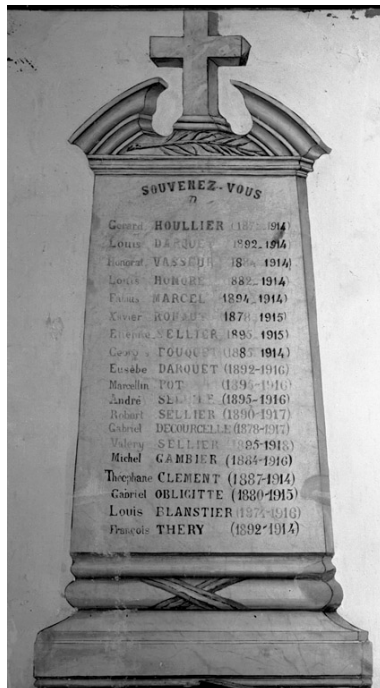 SOUVENEZ-VOUS
Gérard HOULLIER 1914)
Louis DARQUET 1892-1914)
Honorat VASSEUR 1914)
Louis HONORÉ 882-1914
Fabius MARCEL 1894-1914)
Xavier 1878-1915)
Etienne SELLIER 1895-1915)
FOUQUET 1914)
Eusèbe DARQUET (1892-1916)
Marcellin POT (1896-1916)
André SELLIE (1895-1916)
Robert SELLIER (1890-1917)
Gabriel DECOURCELLE (1878-1917)
Valery SELLIER 1895-1918
Michel GAMBIER (1884-1916)
Théophane CLEMENT (1887-1914)
Gabriel OBLIGITTE (1880-1915)
Louis BLANSTIER (1874-1916)
François THERY (1892-1914)